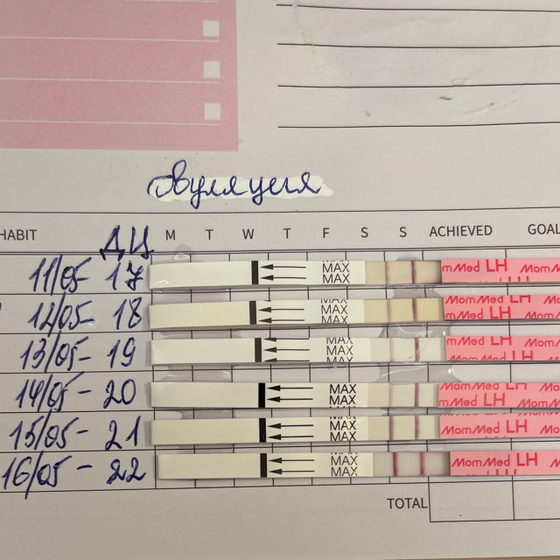 Овуляция
HABIT ДЦ M T W T F S S ACHIEVED GOAL
11/05 - 17 MAX MAX mMed LH MomM
12/05 - 18 MAX MAX MomMed LH Mom
13/05 - 19 MAX MAX MomMed LH
14/05 - 20 MAX MAX MomMed LH Mom
15/05 - 21 MAX MAX MomMed LH Mo
16/05 - 22 MAX MAX MomMed LH Mom
TOTAL